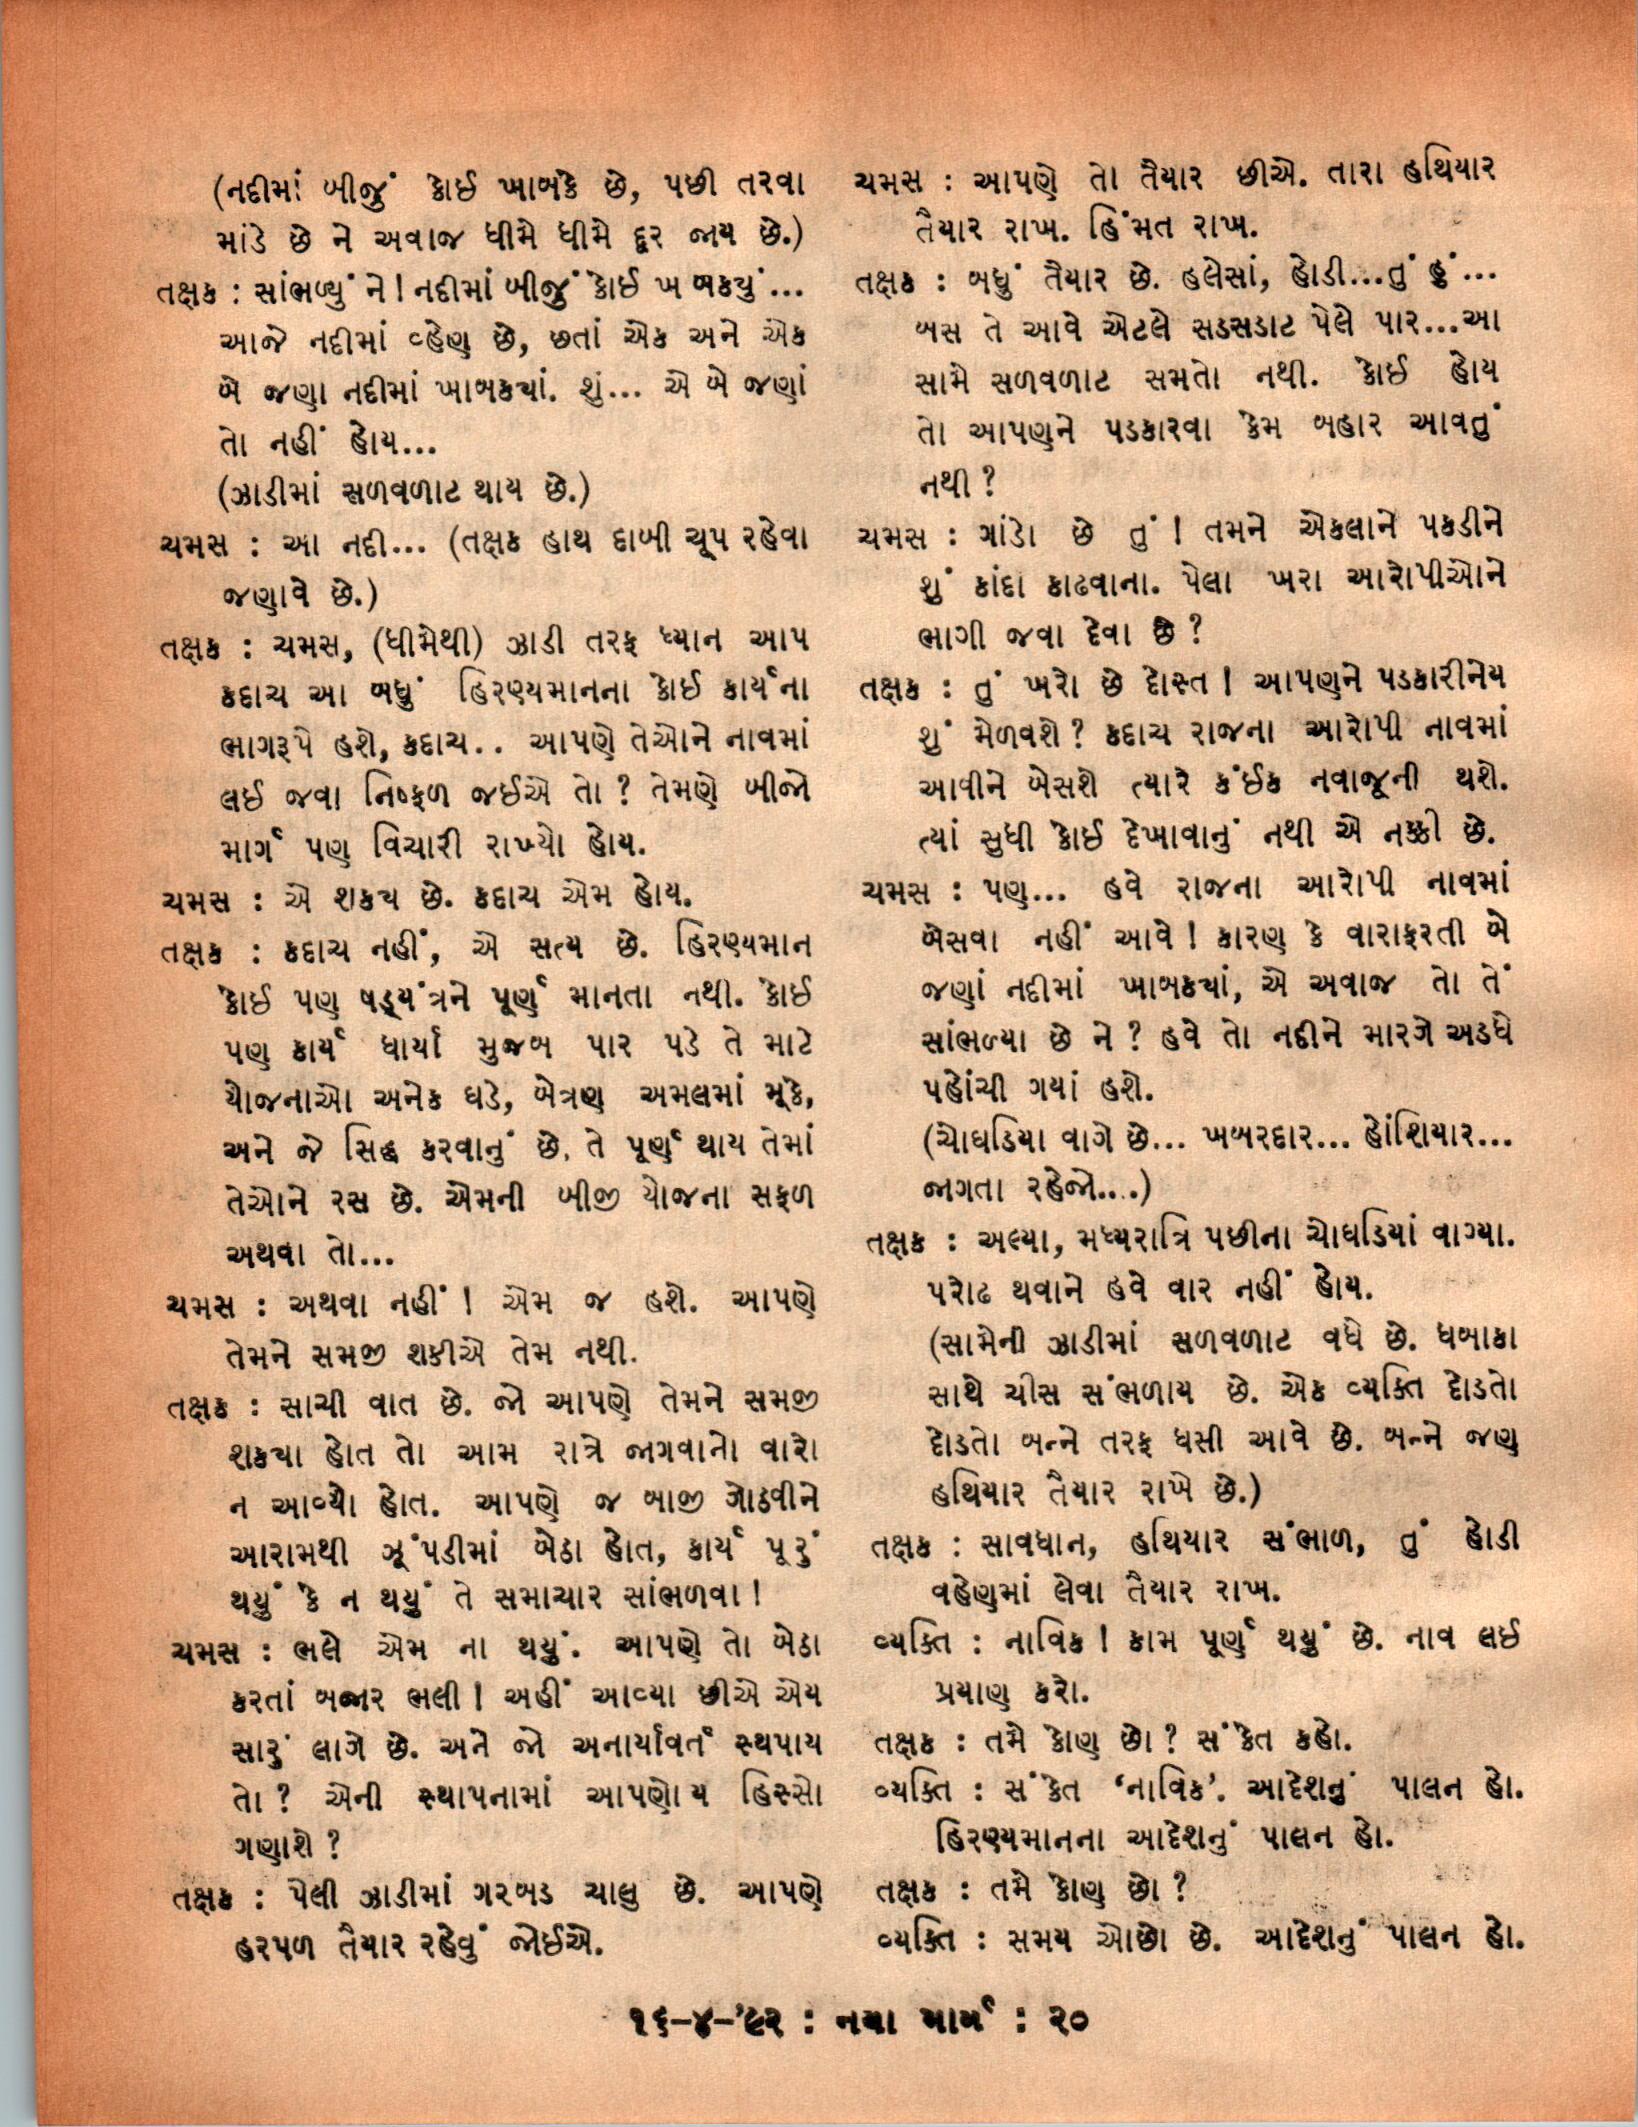 (નદીમાં બીજું કોઈ ખાબકે છે, પછી તરવા
માંડે છે ને અવાજ ધીમે ધીમે દૂર જાય છે.)
તક્ષક : સાંભળ્યું ને! નદીમાં બીજું કોઈ ખાબકયું...
આજે નદીમાં વ્હેણ છે, છતાં એક અને એક
બે જણા નદીમાં ખાબકયાં. શું... એ બે જણાં
તો નહીં હોય...
(ઝાડીમાં સળવળાટ થાય છે.)
ચમસ : આ નદી... (તક્ષક હાથ દાબી ચૂપ રહેવા
જણાવે છે.)
તક્ષક : ચમસ, (ધીમેથી) ઝાડી તરફ ધ્યાન આપ
કદાચ આ બધું હિરણ્યમાનના કોઈ કાર્યના
ભાગરૂપે હશે, કદાચ.. આપણે તેઓને નાવમાં
લઈ જવા નિષ્ફળ જઈએ તો? તેમણે બીજો
માર્ગ પણ વિચારી રાખ્યો હોય.
ચમસ : એ શકય છે. કદાચ એમ હોય.
તક્ષક : કદાચ નહીં, એ સત્ય છે. હિરણ્યમાન
કોઈ પણ ષડ્યંત્રને પૂર્ણ માનતા નથી. કોઈ
પણ કાર્ય ધાર્યા મુજબ પાર પડે તે માટે
યોજનાઓ અનેક ઘડે, બેત્રણ અમલમાં મૂકે,
અને જે સિદ્ધ કરવાનું છે, તે પૂર્ણ થાય તેમાં
તેઓને રસ છે. એમની બીજી યોજના સફળ
અથવા તો...
ચમસ : અથવા નહીં! એમ જ હશે. આપણે
તેમને સમજી શકીએ તેમ નથી.
તક્ષક : સાચી વાત છે. જો આપણે તેમને સમજી
શકયા હોત તો આમ રાત્રે જાગવાનો વારો
ન આવ્યો હોત. આપણે જ બાજી ગોઠવીને
આરામથી ઝૂંપડીમાં બેઠા હોત, કાર્ય પૂરું
થયું કે ન થયું તે સમાચાર સાંભળવા!
ચમસ : ભલે એમ ના થયું. આપણે તો બેઠા
કરતાં બજાર ભલી! અહીં આવ્યા છીએ એય
સારું લાગે છે. અને જો અનાર્યાવર્ત સ્થપાય
તો? એની સ્થાપનામાં આપણોય હિસ્સો
ગણાશે?
તક્ષક : પેલી ઝાડીમાં ગરબડ ચાલુ છે. આપણે
હરપળ તૈયાર રહેવું જોઈએ.
ચમસ : આપણે તો તૈયાર છીએ. તારા હથિયાર
તૈયાર રાખ. હિંમત રાખ.
તક્ષક : બધું તૈયાર છે. હલેસાં, હોડી...તું હું...
બસ તે આવે એટલે સડસડાટ પેલે પાર...આ
સામે સળવળાટ સમતો નથી. કોઈ હોય
તો આપણને પડકારવા કેમ બહાર આવતું
નથી?
ચમસ : ગાંડો છે તું! તમને એકલાને પકડીને
શું કાંદા કાઢવાના. પેલા ખરા આરોપીઓને
ભાગી જવા દેવા છે?
તક્ષક : તું ખરો છે દોસ્ત! આપણને પડકારીનેય
શું મેળવશે? કદાચ રાજના આરોપી નાવમાં
આવીને બેસશે ત્યારે કંઈક નવાજૂની થશે.
ત્યાં સુધી કોઈ દેખાવાનું નથી એ નક્કી છે.
ચમસ : પણ... હવે રાજના આરોપી નાવમાં
બેસવા નહીં આવે! કારણ કે વારાફરતી બે
જણાં નદીમાં ખાબકયાં, એ અવાજ તો તેં
સાંભળ્યા છે ને? હવે તો નદીને મારગે અડધે
પહોંચી ગયાં હશે.
(ચોઘડિયા વાગે છે... ખબરદાર... હોંશિયાર...
જાગતા રહેજો....)
તક્ષક : અલ્યા, મધ્યરાત્રિ પછીના ચોઘડિયાં વાગ્યા.
પરોઢ થવાને હવે વાર નહીં હોય.
(સામેની ઝાડીમાં સળવળાટ વધે છે. ધબાકા
સાથે ચીસ સંભળાય છે. એક વ્યક્તિ દોડતો
દોડતો બન્ને તરફ ધસી આવે છે. બન્ને જણ
હથિયાર તૈયાર રાખે છે.)
તક્ષક : સાવધાન, હથિયાર સંભાળ, તું હોડી
વહેણમાં લેવા તૈયાર રાખ.
વ્યક્તિ : નાવિક! કામ પૂર્ણ થયું છે. નાવ લઈ
પ્રયાણ કરો.
તક્ષક : તમે કોણ છો? સંકેત કહો.
વ્યક્તિ : સંકેત ‘નાવિક’. આદેશનું પાલન હો.
હિરણ્યમાનના આદેશનું પાલન હો.
તક્ષક : તમે કોણ છો?
વ્યક્તિ : સમય ઓછો છે. આદેશનું પાલન હો.
૧૬-૪-’૯૨ : નયા માર્ગ : ૨૦